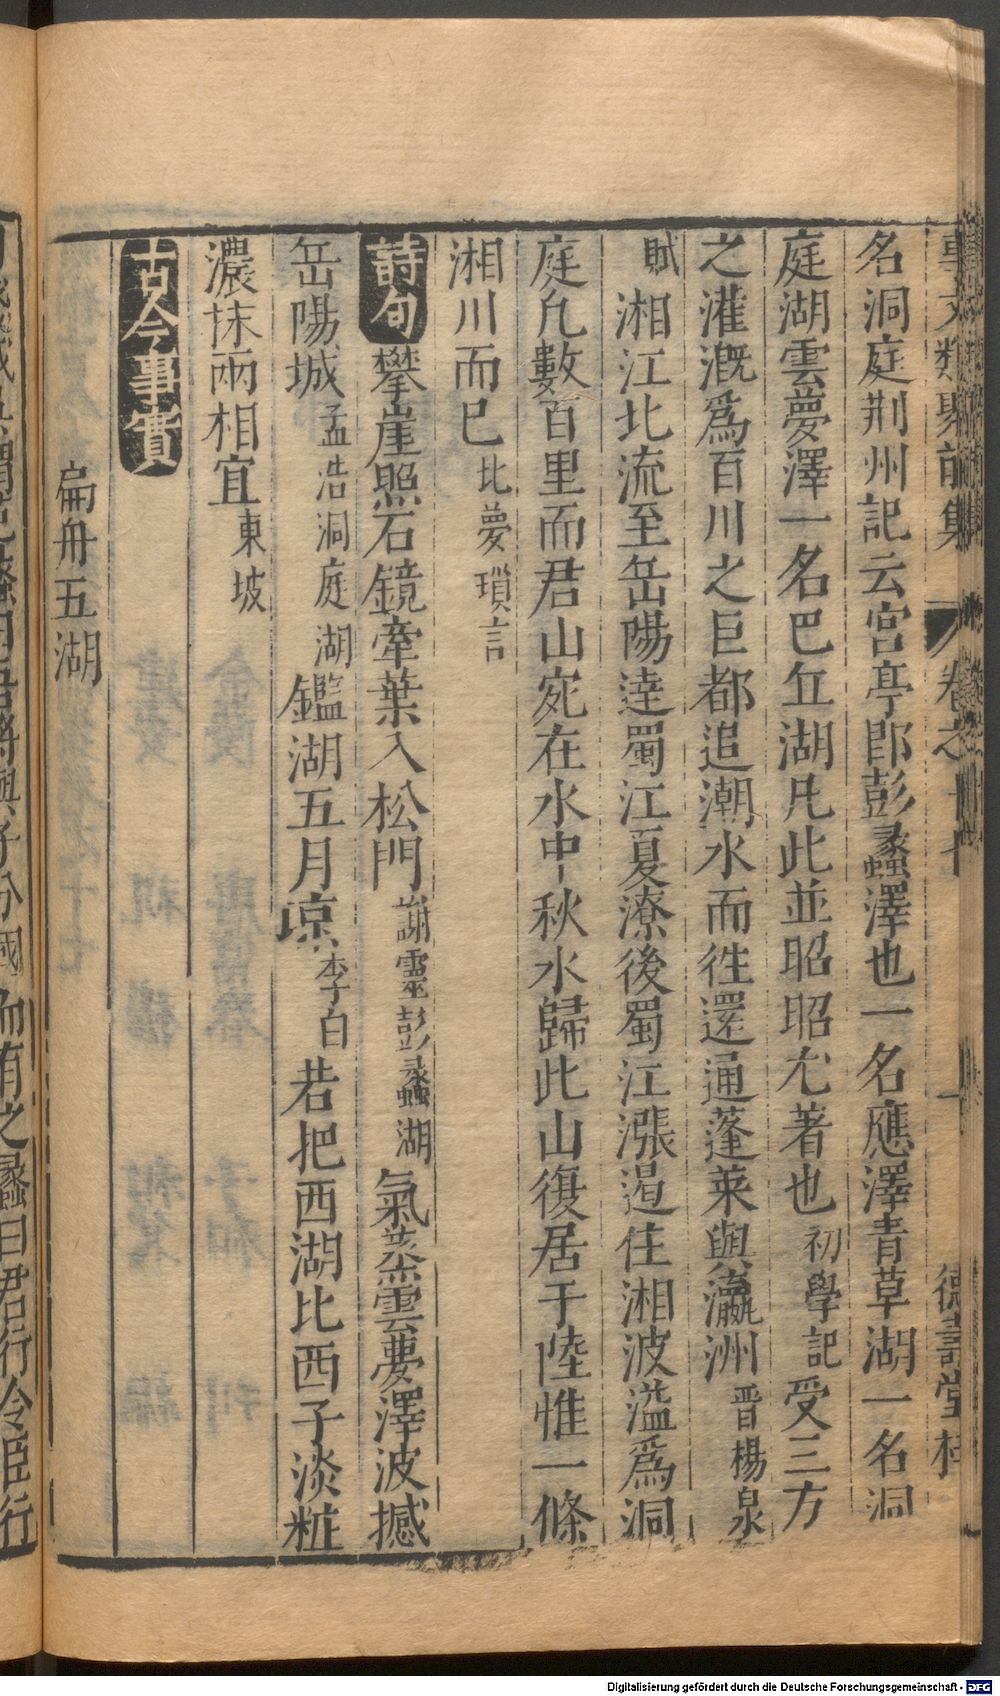 事文類聚前集 卷之十七 一 德壽堂梓
名洞庭荆州記云宮亭即彭蠡澤也一名應澤青草湖一名洞
庭湖雲夢澤一名巴丘湖凢此並昭昭尤著也初學記受三方
之灌溉爲百川之巨都追潮水而徃還通蓬萊與瀛洲晋楊泉
賦湘江北流至岳陽逹蜀江夏潦後蜀江漲遏住湘波溢爲洞
庭凢數百里而君山宛在水中秋水歸此山復居于陸惟一條
湘川而已北夢瑣言
詩句攀崖照石鏡牽葉入松門謝靈彭蠡湖氣蒸雲夢澤波撼
岳陽城孟浩洞庭湖鑑湖五月凉李白若把西湖比西子淡粧
濃抹兩相宜東坡
古今事實
扁舟五湖
而有之蠡曰君行令臣行
Digitalisierung gefördert durch die Deutsche Forschungsgemeinschaft - DFG